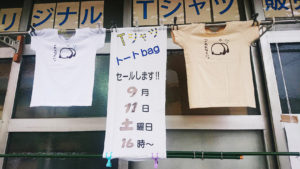 リジナル Tシャツ 販
Tシャツ
トートbag
セールします!!
9月
11日
土曜日
16時〜